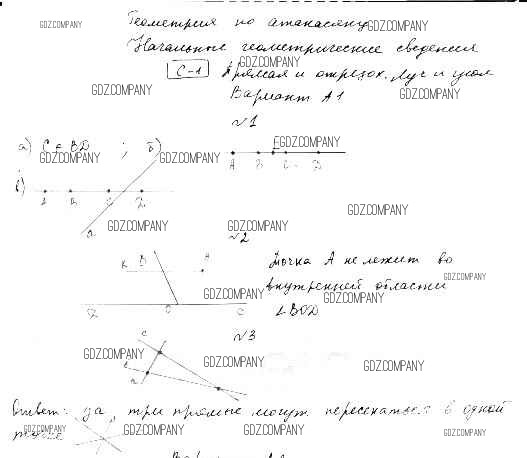 Геометрия по атанасяну
GDZ.COMPANY GDZ.COMPANY
Начальные геометрические сведения
GDZ.COMPANY
С-1 Прямая и отрезок. Луч и угол
GDZ.COMPANY Вариант А1 GDZ.COMPANY
№1
а) C ∈ BD ; б) E GDZ.COMPANY
GDZ.COMPANY GDZ.COMPANY A B C D
в)
A B C D
GDZ.COMPANY
a GDZ.COMPANY GDZ.COMPANY
№2
K B A Точка А не лежит во
GDZ.COMPANY
GDZ.COMPANY внутренней области
GDZ.COMPANY
D O C ∠BOD
№3
c
GDZ.COMPANY GDZ.COMPANY GDZ.COMPANY
a
Ответ: да, три прямые могут пересекаться в одной
точке
GDZ.COMPANY GDZ.COMPANY GDZ.COMPANY GDZ.COMPANY